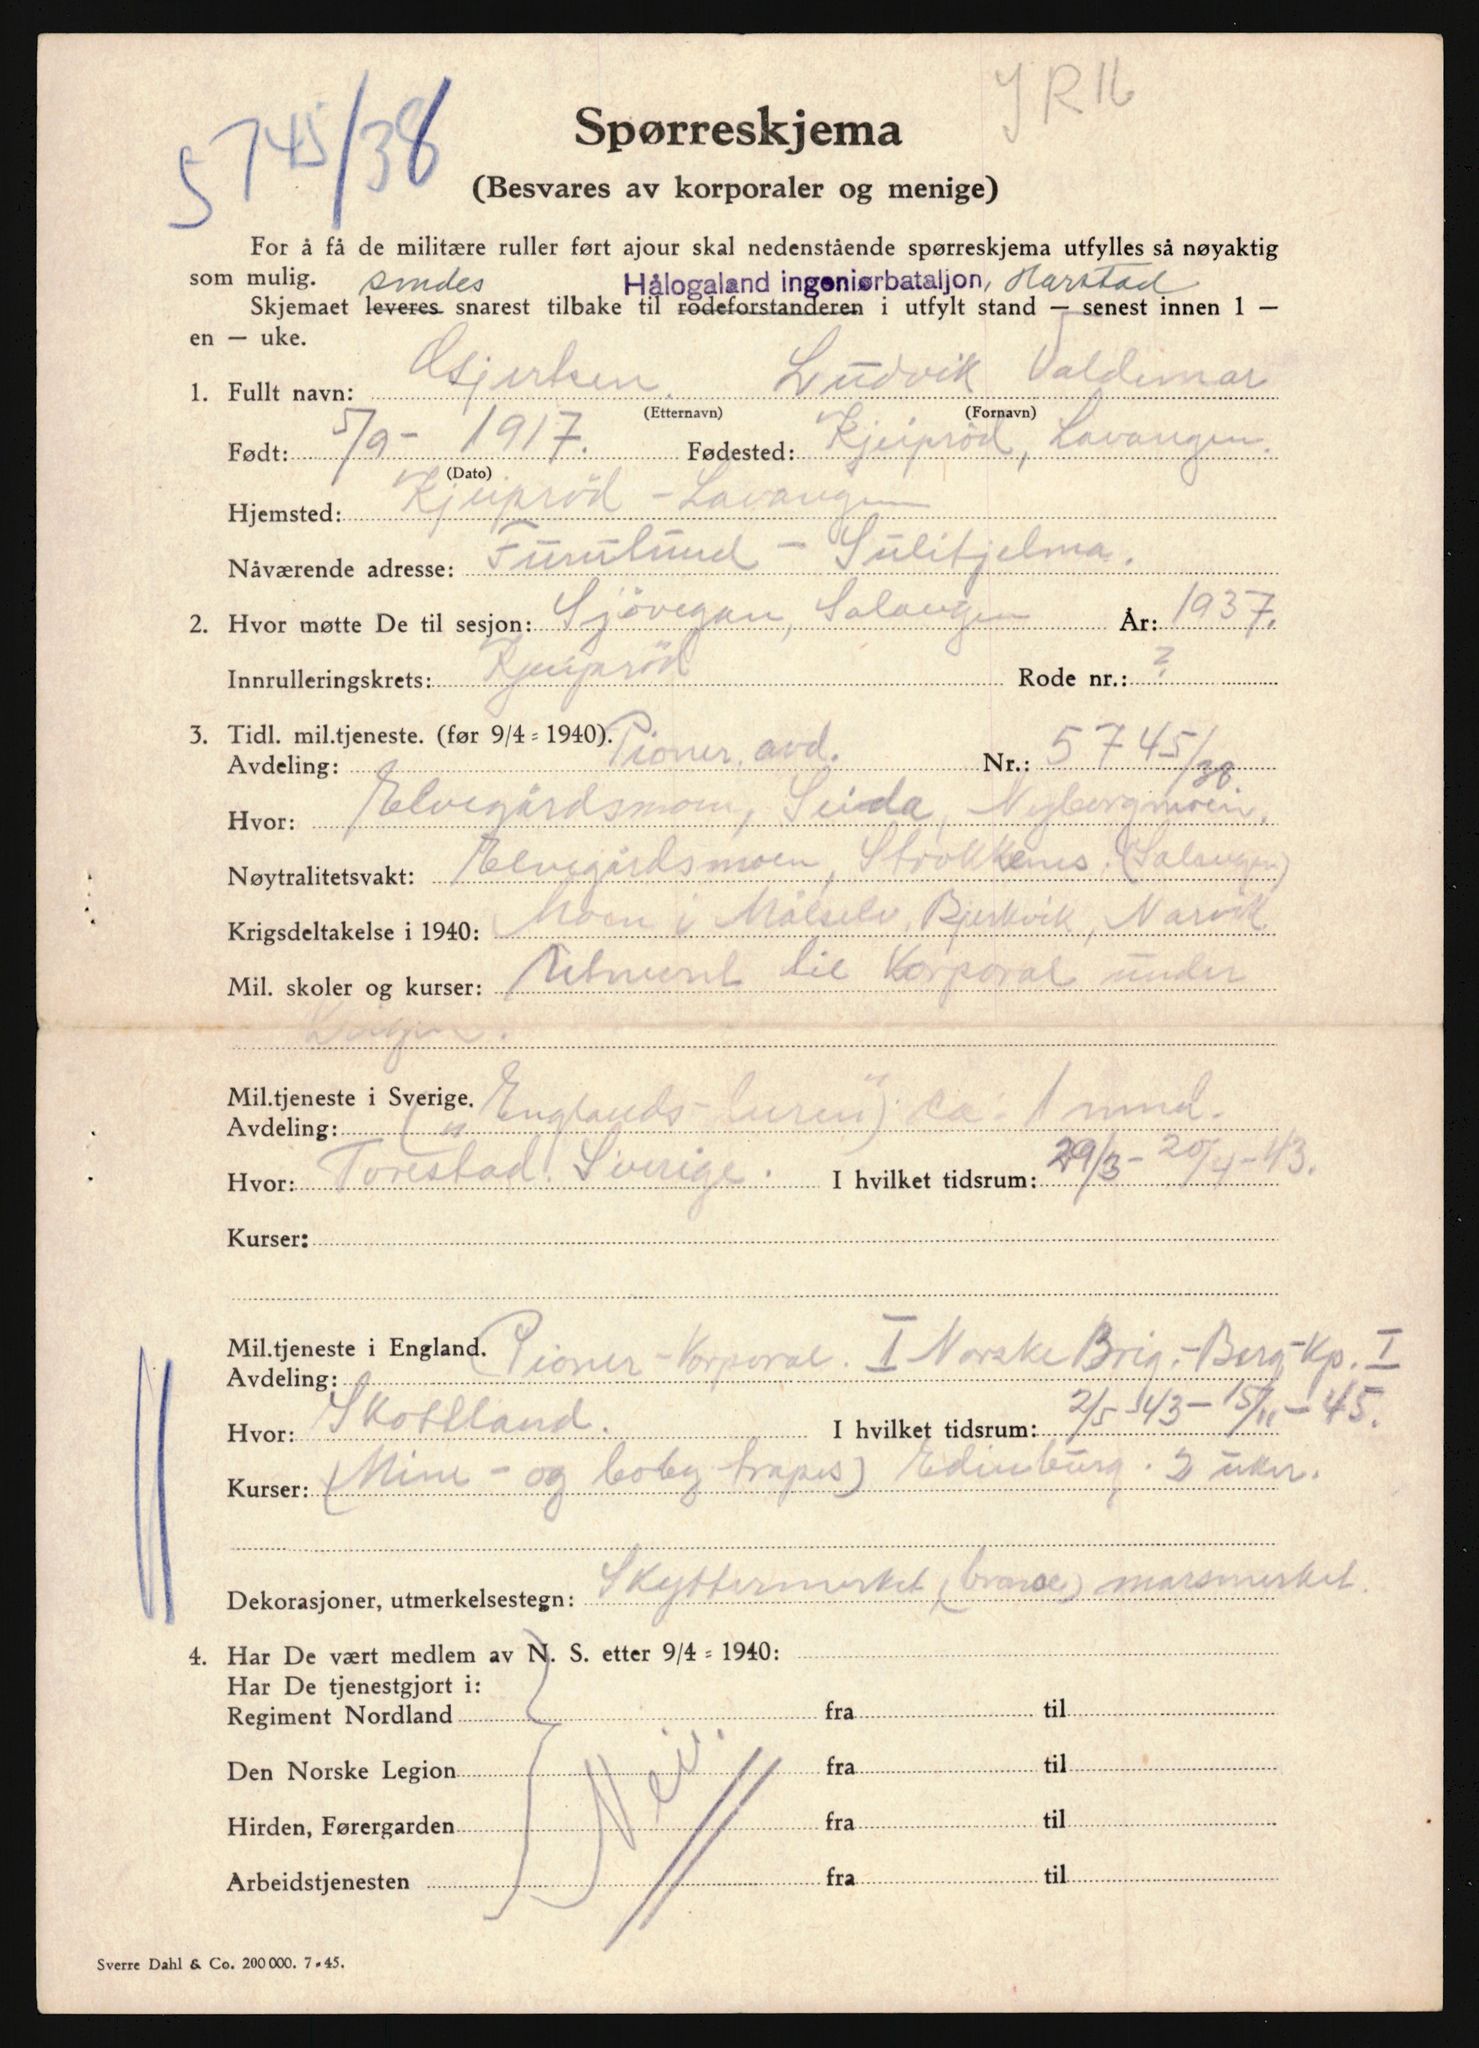 5745/38
JR 16
Spørreskjema
(Besvares av korporaler og menige)
For å få de militære ruller ført ajour skal nedenstående spørreskjema utfylles så nøyaktig
som mulig. sendes Hålogaland ingeniørbataljon, Harstad
Skjemaet leveres snarest tilbake til rodeforstanderen i utfylt stand — senest innen 1 —
en — uke.
1. Fullt navn: Gjertsen Ludvik Valdemar
(Etternavn) (Fornavn)
Født: 5/9 - 1917. Fødested: Kjeiprød, Lavangen.
(Dato)
Hjemsted: Kjeiprød - Lavangen
Nåværende adresse: Furulund - Sulitjelma.
2. Hvor møtte De til sesjon: Sjøvegan, Salangen År: 1937.
Innrulleringskrets: Kjeiprød Rode nr.: ?
3. Tidl. mil.tjeneste. (før 9/4 = 1940).
Avdeling: Pioner. avd. Nr.: 5745/38
Hvor: Elvegårdsmoen, Seida, Nybergmoen,
Nøytralitetsvakt: Elvegårdsmoen, Strokkenes. (Salangen)
Krigsdeltakelse i 1940: Moen i Målselv, Bjerkvik, Narvik
Mil. skoler og kurser: Utnevnt til Korporal under
Krigen.
Mil.tjeneste i Sverige.
Avdeling: („Englands-luren") ca. 1 mnd.
Hvor: Torestad. Sverige. I hvilket tidsrum: 29/3 - 20/4 - 43.
Kurser:
Mil.tjeneste i England.
Avdeling: Pioner-Korporal. I Norske Brig. - Berg-Kp. I
Hvor: Skottland. I hvilket tidsrum: 2/5 - 43 - 15/11 - 45.
Kurser: (Mine - og boby-trapes) Edinburg. 2 uker.
Dekorasjoner, utmerkelsestegn: Skyttermerket (bronse) marsmerket.
4. Har De vært medlem av N. S. etter 9/4 = 1940:
Har De tjenestgjort i:
Regiment Nordland fra til
Den Norske Legion fra til
Nei.
Hirden, Førergarden fra til
Arbeidstjenesten fra til
Sverre Dahl & Co. 200 000. 7 - 45.